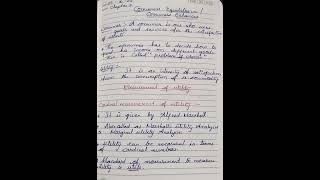 Chapter
Consumer Equilibrium /
Consumer Behaviour
Consumer :- A consumer is one who uses
goods and services for the satisfaction
of wants
The consumer has to decide how to
spend his income on different goods.
This is called "problem of choice"
Utility :- It is an intensity of satisfaction
from the consumption of a commodity
Measurement of utility
Cardinal measurement of utility :-
It is given by Alfred Marshal
Also called as Marshall's Utility Analysis
Marginal Utility Analysis
Utility can be measured in terms
of cardinal numbers
Standard of measurement to measure
utility is utils.